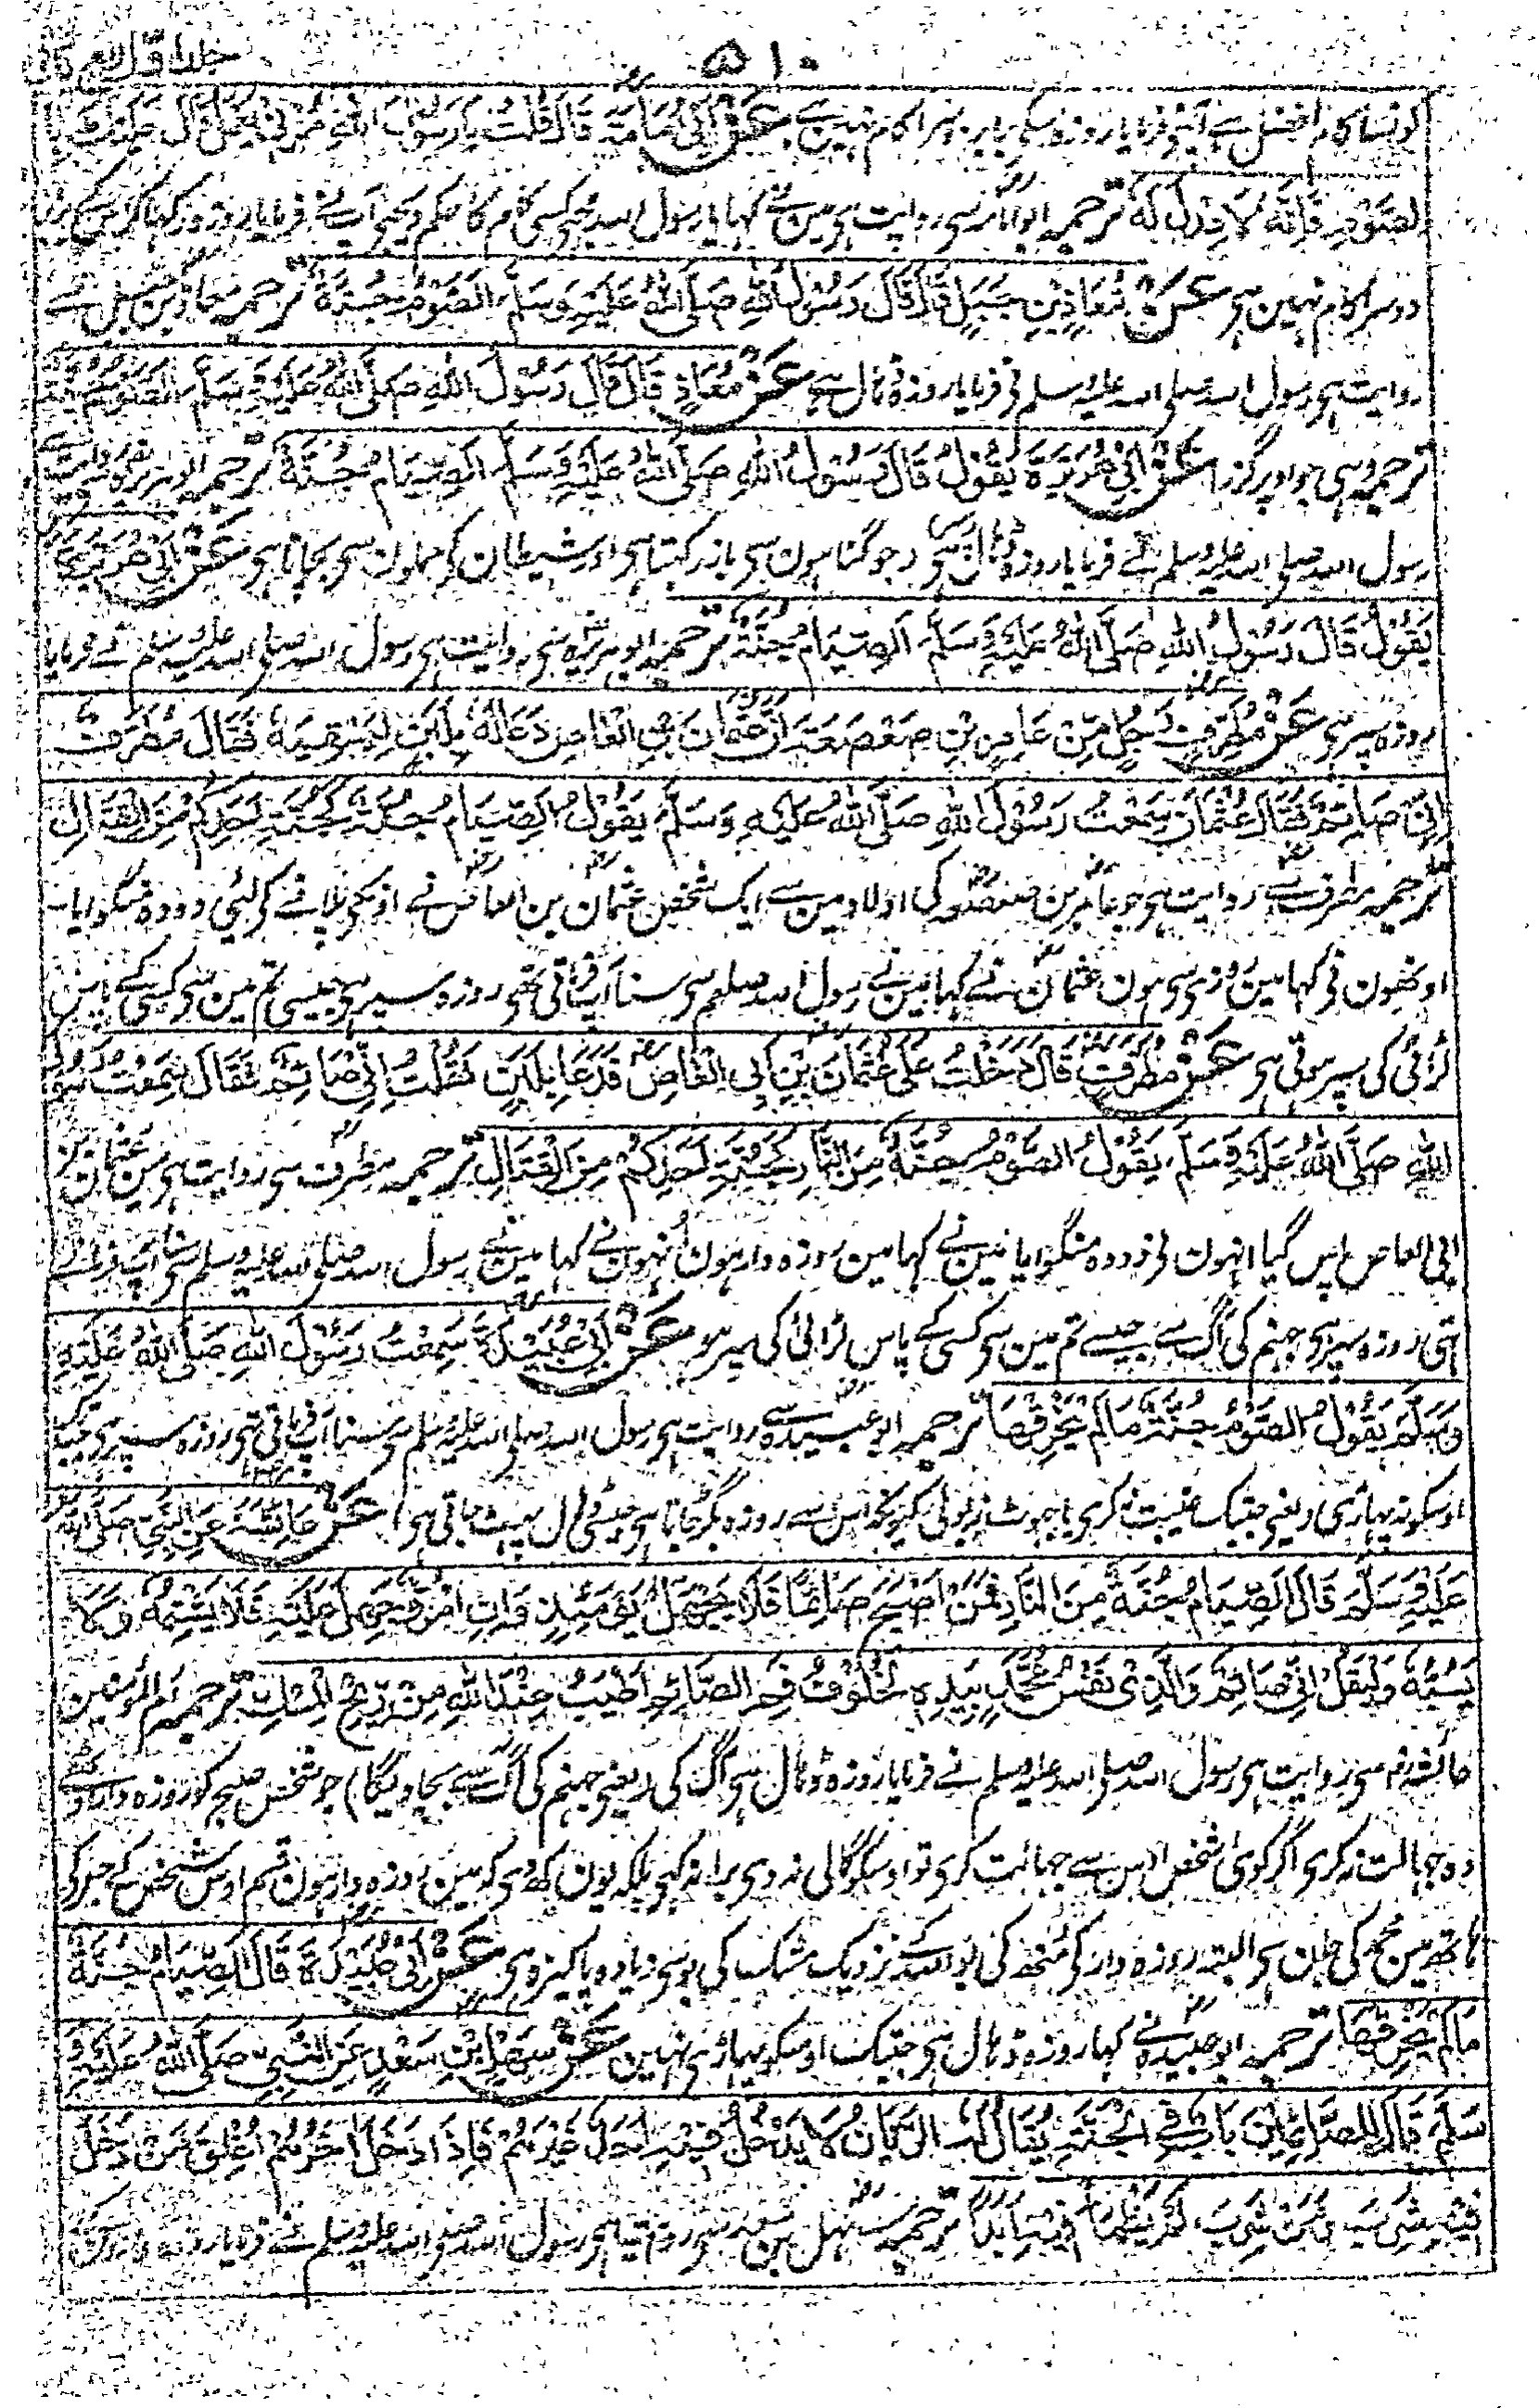 ۵۱۰
جلد اوّل
کونسا کام افضل ہے آپنے فرمایا روزہ اسکے برابر دوسرا کام نہین ہے عَنْ اَبِیْ اُمَامَةَ قَالَ قُلْتُ یَا رَسُوْلَ اللّٰهِ مُرْنِیْ بِعَمَلٍ قَالَ عَلَیْكَ بِا
لصَّوْمِ فَاِنَّهٗ لَا عِدْلَ لَهٗ ترجمہ ابو امامہ سی روایت ہی مین نے کہا یا رسول اللہ مجھی کسی کام کا حکم دیجیٔ آپ نے فرمایا روزہ رکہا کر اس کے برابر
دوسرا کام نہین ہی عَنْ مُعَاذِ بْنِ جَبَلٍ قَالَ قَالَ رَسُوْلُ اللّٰهِ صَلَّی اللّٰهُ عَلَیْهِ وَسَلَّمَ الصَّوْمُ جُنَّةٌ ترجمہ معاذ بن جبل سے
روایت ہی رسول اللہ صلی اللہ علیہ وسلم نی فرمایا روزہ ڈہال ہے عَنْ مُعَاذٍ قَالَ قَالَ رَسُوْلُ اللّٰهِ صَلَّی اللّٰهُ عَلَیْهِ وَسَلَّمَ الصَّوْمُ جُنَّةٌ
ترجمہ وہی جو اوپر گزرا عَنْ اَبِیْ هُرَیْرَةَ یَقُوْلُ قَالَ رَسُوْلُ اللّٰهِ صَلَّی اللّٰهُ عَلَیْهِ وَسَلَّمَ الصِّیَامُ جُنَّةٌ ترجمہ ابو ہریرہ سے روایت ہے
رسول اللہ صلی اللہ علیہ وسلم نے فرمایا روزہ ڈہال ہی (جو گناہون سی باز رکہتا ہی اور شیطان کے حملون سی بچاتا ہی عَنْ اَبِیْ هُرَیْرَةَ
یَقُوْلُ قَالَ رَسُوْلُ اللّٰهِ صَلَّی اللّٰهُ عَلَیْهِ وَسَلَّمَ الصِّیَامُ جُنَّةٌ ترجمہ ابو ہریرہ سی روایت ہی رسول اللہ صلی اللہ علیہ وسلم نے فرمایا
روزہ سپر ہی عَنْ مُطَرِّفٍ رَجُلٍ مِّنْ عَامِرِ بْنِ صَعْصَعَةَ اَنَّ عُثْمَانَ بْنَ الْعَاصِ دَعَا لَهٗ بِلَبَنٍ لِیَسْقِیَهٗ فَقَالَ مُطَرِّفٌ
اِنِّیْ صَائِمٌ فَقَالَ عُثْمَانُ سَمِعْتُ رَسُوْلَ اللّٰهِ صَلَّی اللّٰهُ عَلَیْهِ وَسَلَّمَ یَقُوْلُ الصِّیَامُ جُنَّةٌ كَجُنَّةِ اَحَدِكُمْ مِنَ الْقِتَالِ
ترجمہ مطرف سے روایت ہی جو عامر بن صعصعہ کی اولاد مین سے ایک شخص عثمان بن العاص نے اونکی پلانے کو لیٔی دودہ منگوایا
اونہون نی کہا مین روزی سی ہون عثمان نے کہا مین نے رسول اللہ صلعم سی سنا آپ فرماتی تھی روزہ سپر ہی جیسی تم مین سی کسی کے پاس
لڑائی کی سپر ہوتی ہی عَنْ مُطَرِّفٍ قَالَ دَخَلْتُ عَلٰی عُثْمَانَ بْنِ اَبِی الْعَاصِ فَدَعَا بِلَبَنٍ فَقُلْتُ اِنِّیْ صَائِمٌ فَقَالَ سَمِعْتُ رَسُوْلَ
اللّٰهِ صَلَّی اللّٰهُ عَلَیْهِ وَسَلَّمَ یَقُوْلُ الصَّوْمُ جُنَّةٌ مِنَ النَّارِ كَجُنَّةِ اَحَدِكُمْ مِنَ الْقِتَالِ ترجمہ مطرف سی روایت ہی مین عثمان بن
ابی العاص پاس گیا انہون نی دودہ منگوایا مین نے کہا مین روزہ دار ہون اُنہون نے کہا مین نے رسول اللہ صلی اللہ علیہ وسلم سی سنا آپ فرماتے
تہی روزہ سپر ہی جہنم کی آگ سے جیسے تم مین سی کسی کے پاس لڑائی کی سپر ہو عَنْ اَبِیْ عُبَیْدَةَ سَمِعْتُ رَسُوْلَ اللّٰهِ صَلَّی اللّٰهُ عَلَیْهِ
وَسَلَّمَ یَقُوْلُ الصَّوْمُ جُنَّةٌ مَا لَمْ یَخْرِقْهَا ترجمہ ابو عبیدہ سے روایت ہی رسول اللہ صلی اللہ علیہ وسلم سی سنا آپ فرماتی تھی روزہ سپر ہی جبتک
اوسکو نہ پہاڑی (یعنی جبتک غیبت نہ کری یا جہوٹ نہ بولی کیونکہ اس سے روزہ بگڑ جاتا ہی جیسی ڈہال پہٹ جاتی ہی) عَنْ عَائِشَةَ عَنِ النَّبِیِّ صَلَّی اللّٰهُ
عَلَیْهِ وَسَلَّمَ قَالَ الصِّیَامُ جُنَّةٌ مِنَ النَّارِ فَمَنْ اَصْبَحَ صَائِمًا فَلَا یَجْهَلْ یَوْمَئِذٍ وَاِنِ امْرُؤٌ جَهِلَ عَلَیْهِ فَلَا یَشْتِمْهُ وَلَا
یَسُبَّهٗ وَلْیَقُلْ اِنِّیْ صَائِمٌ وَالَّذِیْ نَفْسُ مُحَمَّدٍ بِیَدِهٖ لَخُلُوْفُ فَمِ الصَّائِمِ اَطْیَبُ عِنْدَ اللّٰهِ مِنْ رِّیْحِ الْمِسْكِ ترجمہ ام المومنین
عائشہ رض سی روایت ہی رسول اللہ صلی اللہ علیہ وسلم نے فرمایا روزہ ڈہال ہی آگ کی (یعنی جہنم کی آگ سے بچاویگا) جو شخص صبح کو روزہ دار اوٹھے
وہ جہالت نہ کری اگر کوئی شخص اس سے جہالت کری تو اوسکو گالی نہ دی برا نہ کہی بلکہ یون کہدی کہ مین روزہ دار ہون قسم اوس شخص کے جس کی
ہاتھ مین محمد کی جان ہی البتہ روزہ دار کی منھ کی بو اللہ کے نزدیک مشک کی بو سی زیادہ پاکیزہ ہی عَنْ اَبِیْ عُبَیْدَةَ قَالَ الصِّیَامُ جُنَّةٌ
مَا لَمْ یَخْرِقْهَا ترجمہ ابو عبیدہ نے کہا روزہ ڈہال ہی جبتک اوسکو پہاڑی نہین عَنْ سَهْلِ بْنِ سَعْدٍ عَنِ النَّبِیِّ صَلَّی اللّٰهُ عَلَیْهِ وَ
سَلَّمَ قَالَ لِلصَّائِمِیْنَ بَابٌ فِی الْجَنَّةِ یُقَالُ لَهُ الرَّیَّانُ لَا یَدْخُلُ فِیْهِ اَحَدٌ غَیْرُهُمْ فَاِذَا دَخَلَ اٰخِرُهُمْ اُغْلِقَ مَنْ دَخَلَ
فِیْهِ شَرِبَ وَمَنْ شَرِبَ لَمْ یَظْمَأْ فِیْهِ اَبَدًا ترجمہ سہل بن سعد سی روایت ہی رسول اللہ صلی اللہ علیہ وسلم نے فرمایا روزہ دارون